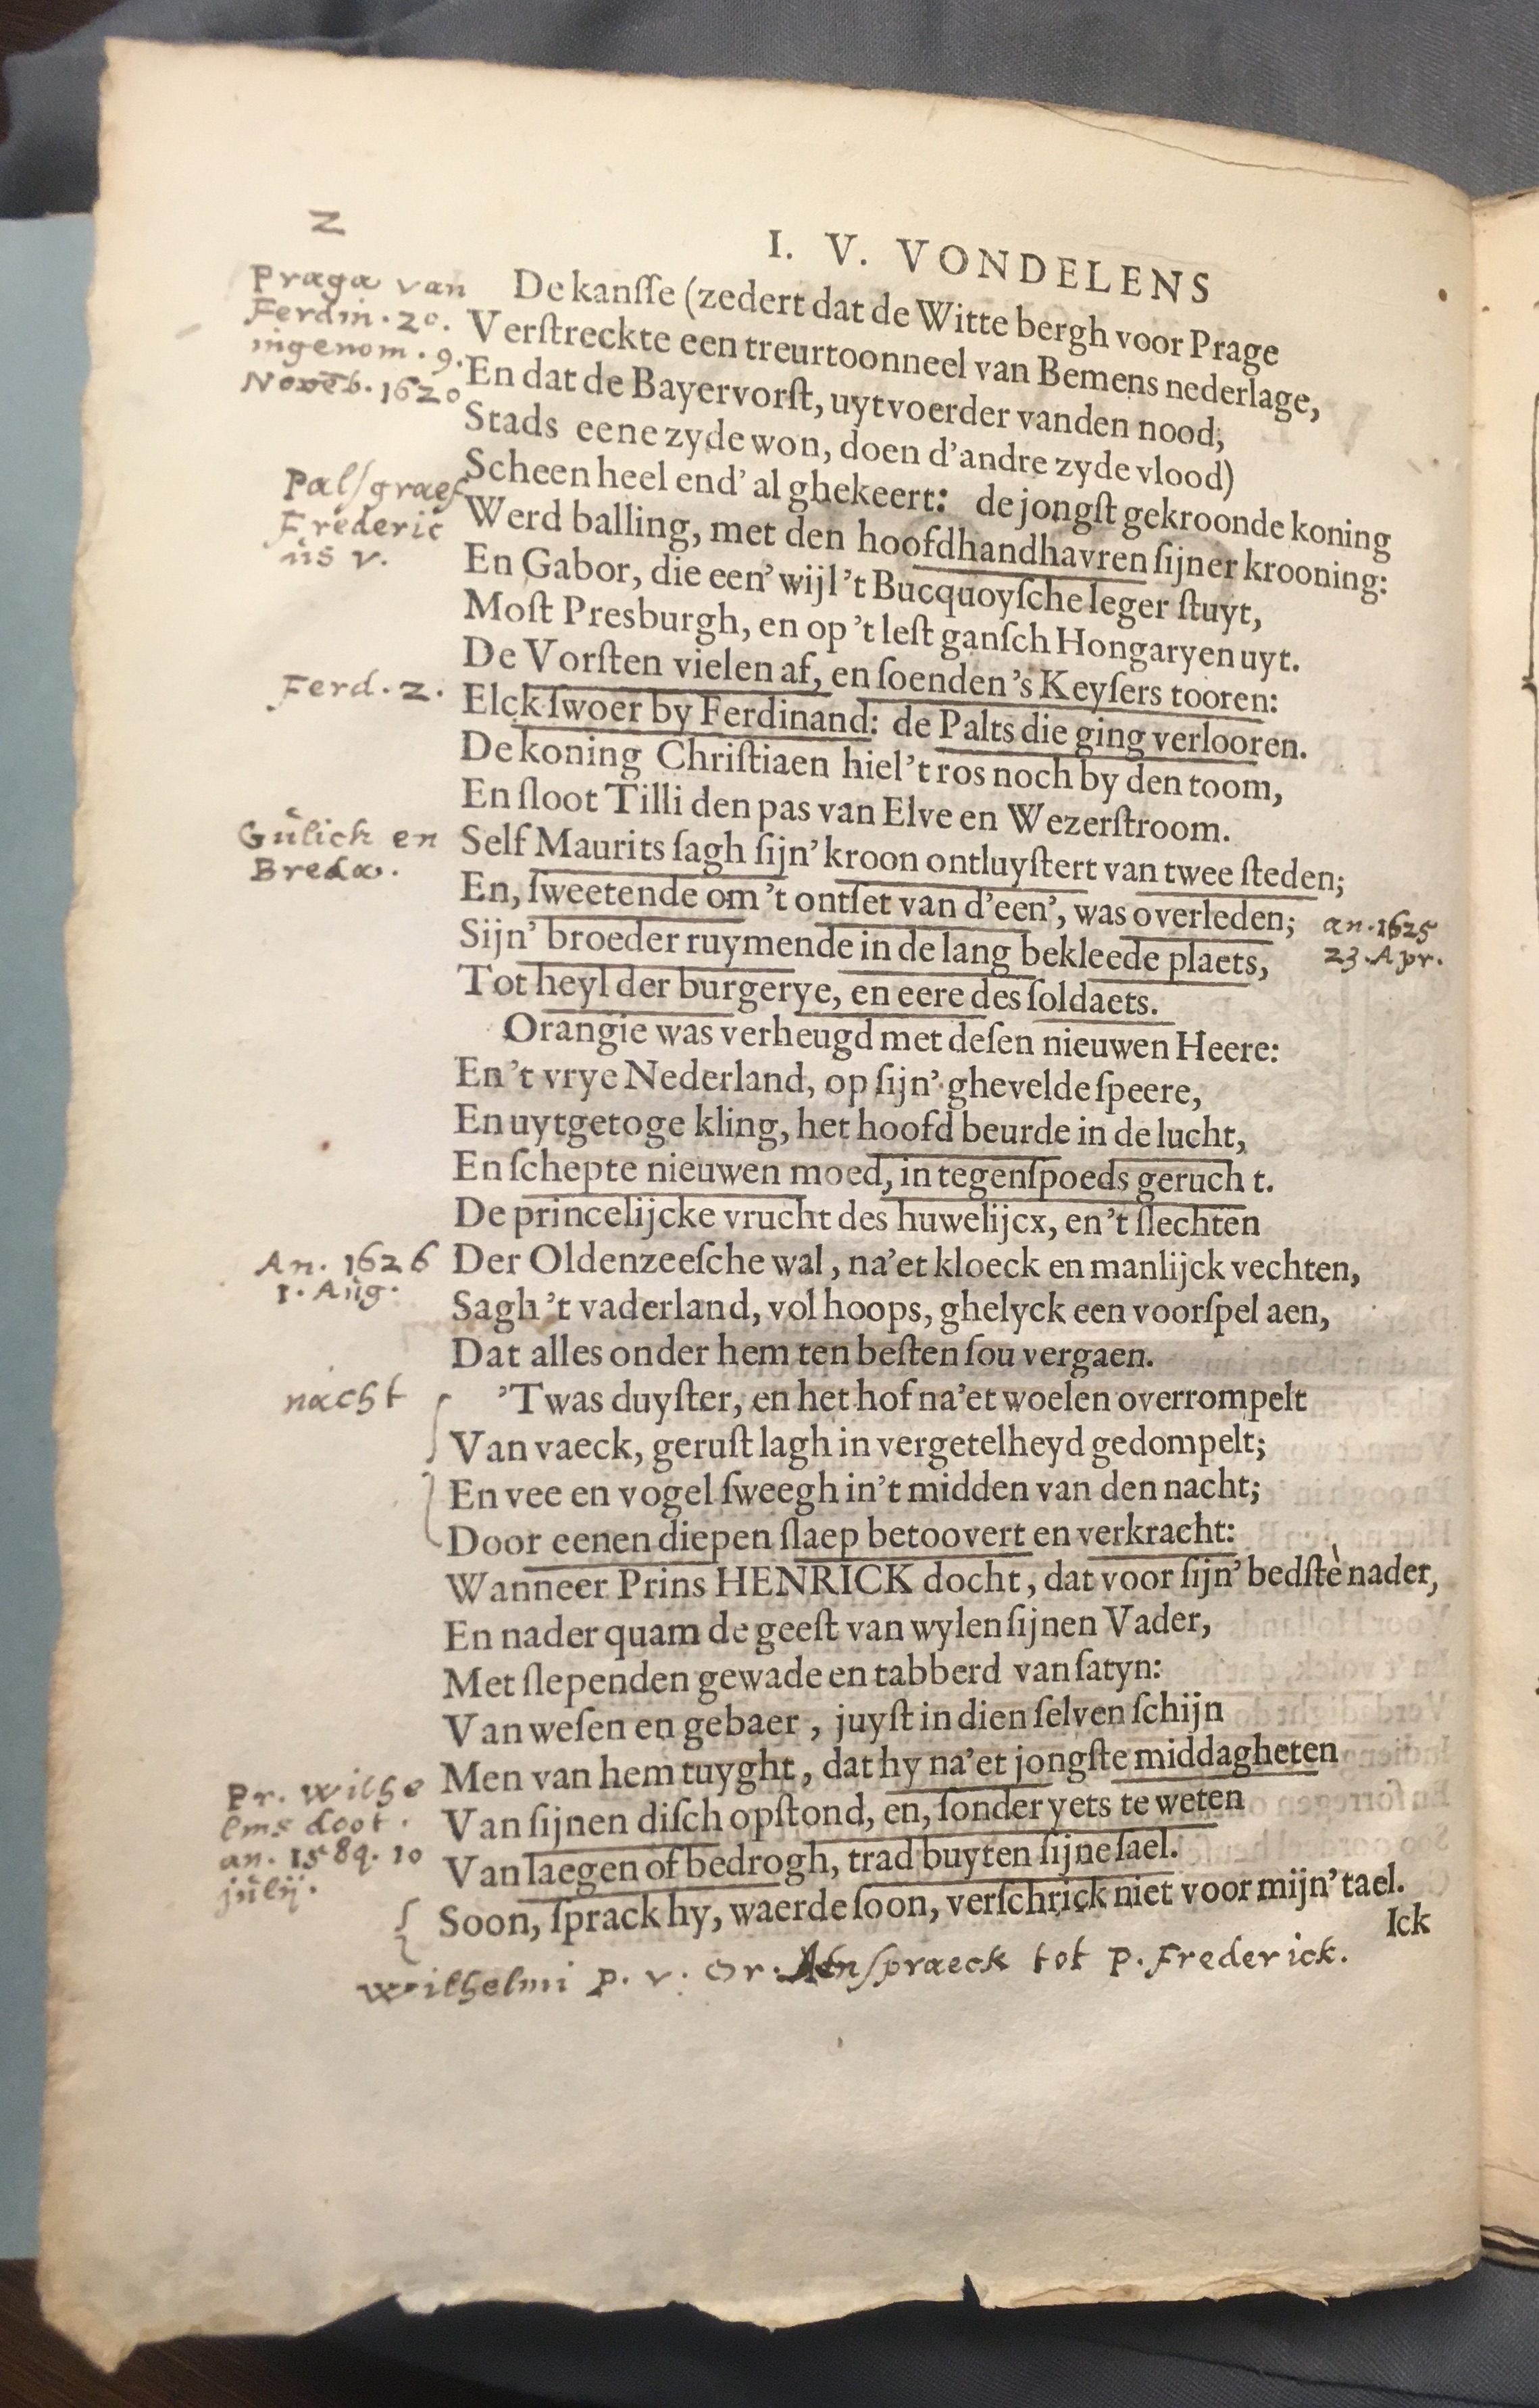 2
I. V. VONDELENS
Praga van
Ferdin. 2o.
ingenom. 9.
Novēb. 1620
De kansſe (zedert dat de Witte bergh voor Prage
Verſtreckte een treurtoonneel van Bemens nederlage,
En dat de Bayervorſt, uytvoerder vanden nood,
Stads eene zyde won, doen d'andre zyde vlood)
Scheen heel end' al ghekeert: de jongſt gekroonde koning
Palſgraef
Frederic
us v.
Werd balling, met den hoofdhandhavren ſijner krooning:
En Gabor, die een' wijl 't Bucquoyſche leger ſtuyt,
Moſt Presburgh, en op 't leſt ganſch Hongaryen uyt.
De Vorſten vielen af, en ſoenden 's Keyſers tooren:
Ferd. 2.
Elck ſwoer by Ferdinand: de Palts die ging verlooren.
De koning Chriſtiaen hiel 't ros noch by den toom,
En ſloot Tilli den pas van Elve en Wezerſtroom.
Gulich en
Breda.
Self Maurits ſagh ſijn' kroon ontluyſtert van twee ſteden;
En, ſweetende om 't ontſet van d'een', was overleden;
an. 1625
23. Apr.
Sijn' broeder ruymende in de lang bekleede plaets,
Tot heyl der burgerye, en eere des ſoldaets.
Orangie was verheugd met deſen nieuwen Heere:
En 't vrye Nederland, op ſijn' ghevelde ſpeere,
En uytgetoge kling, het hoofd beurde in de lucht,
En ſchepte nieuwen moed, in tegenſpoeds geruch t.
De princelijcke vrucht des huwelijcx, en 't ſlechten
An. 1626
1. Aug.
Der Oldenzeeſche wal, na'et kloeck en manlijck vechten,
Sagh 't vaderland, vol hoops, ghelyck een voorſpel aen,
Dat alles onder hem ten beſten ſou vergaen.
nacht
'Twas duyſter, en het hof na'et woelen overrompelt
Van vaeck, geruſt lagh in vergetelheyd gedompelt;
En vee en vogel ſweegh in't midden van den nacht;
Door eenen diepen ſlaep betoovert en verkracht:
Wanneer Prins HENRICK docht, dat voor ſijn' bedſtè nader,
En nader quam de geeſt van wylen ſijnen Vader,
Met ſlependen gewade en tabberd van ſatyn:
Van weſen en gebaer, juyſt in dien ſelven ſchijn
Men van hem tuyght, dat hy na'et jongſte middagheten
Pr. Wilhe
lms doot.
an. 1584. 10
julij.
Van ſijnen diſch opſtond, en, ſonder yets te weten
Van laegen of bedrogh, trad buyten ſijne ſael.
Soon, ſprack hy, waerde ſoon, verſchrick niet voor mijn' tael.
Ick
Wilhelmi P. v. Or. Aenſpraeck tot P. Frederick.